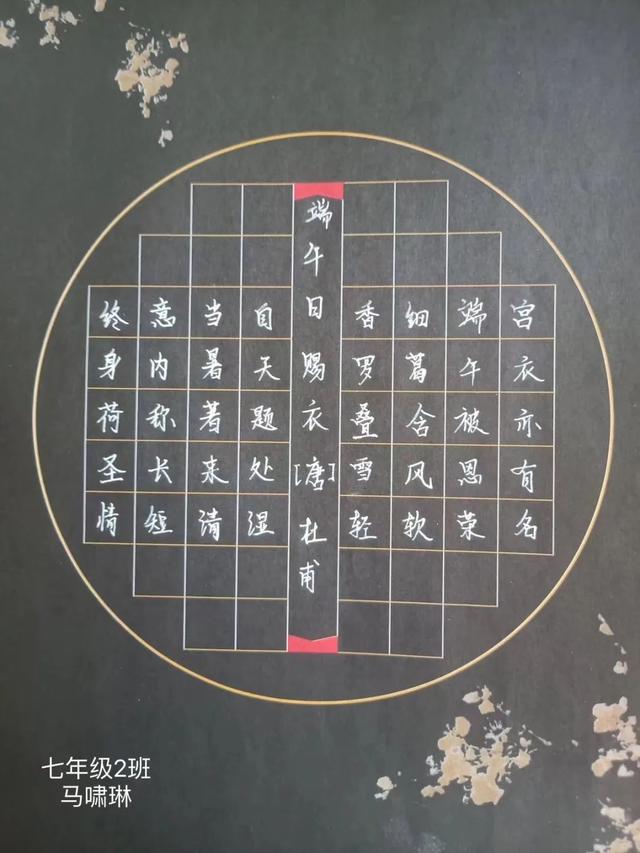 宫衣亦有名
端午被恩荣
细葛含风软
香罗叠雪轻
端午日赐衣[唐]杜甫
自天题处湿
当暑著来清
意内称长短
终身荷圣情
七年级2班
马啸琳